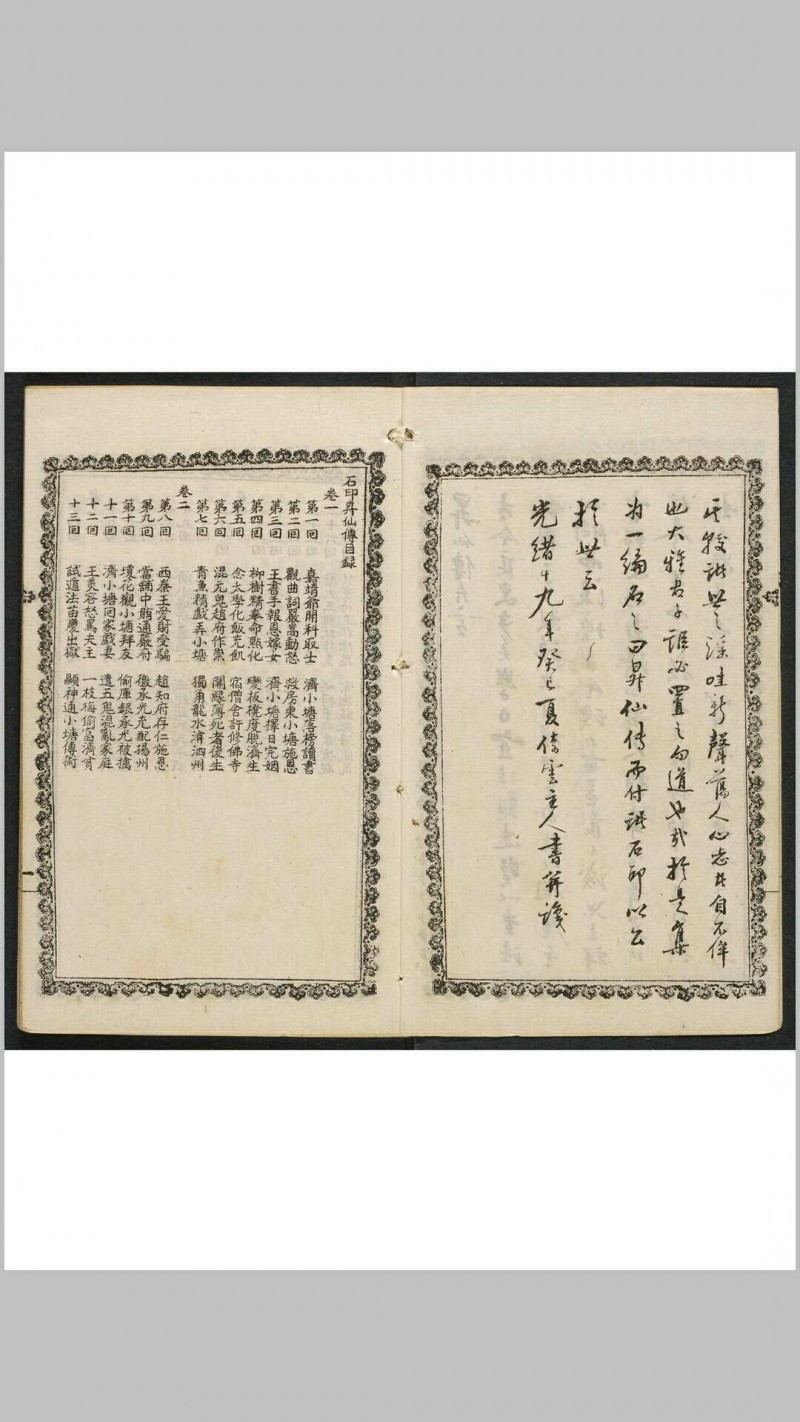 其較諸世之淫哇新聲蕩人心志其自不侔
也大雅君子誰必置之勿道也哉於是集
為一編名之曰昇仙傳而付諸石印以公
於世云
光緒十九年癸巳夏倚雲主人書并識
石印昇仙傳目錄
卷一
第一回 嘉靖爺開科取士 濟小塘落榜讀書
第二回 觀曲詞嚴嵩動怒 救房東小塘施恩
第三回 王書手報恩嫁女 濟小塘擇日完姻
第四回 柳樹精奉命點化 變板櫈度脫濟生
第五回 念太學化飯充飢 宿僧舍許修佛寺
第六回 混元鬼趙府作祟 開緣簿死者復生
第七回 青魚橋戲弄小塘 獨角龍水渰泗州
卷二
第八回 西秦王愛財受騙 趙知府存仁施恩
第九回 當舖中賄通嚴府 徽承光充配揚州
第十回 瓊花觀小塘拜友 偷庫銀承光被擒
十一回 濟小塘回家戲妻 遣五鬼混亂家庭
十二回 王炎容怒罵夫主 一枝梅偷富濟貧
十三回 試道法苗慶出獄 顯神通小塘傳術
一